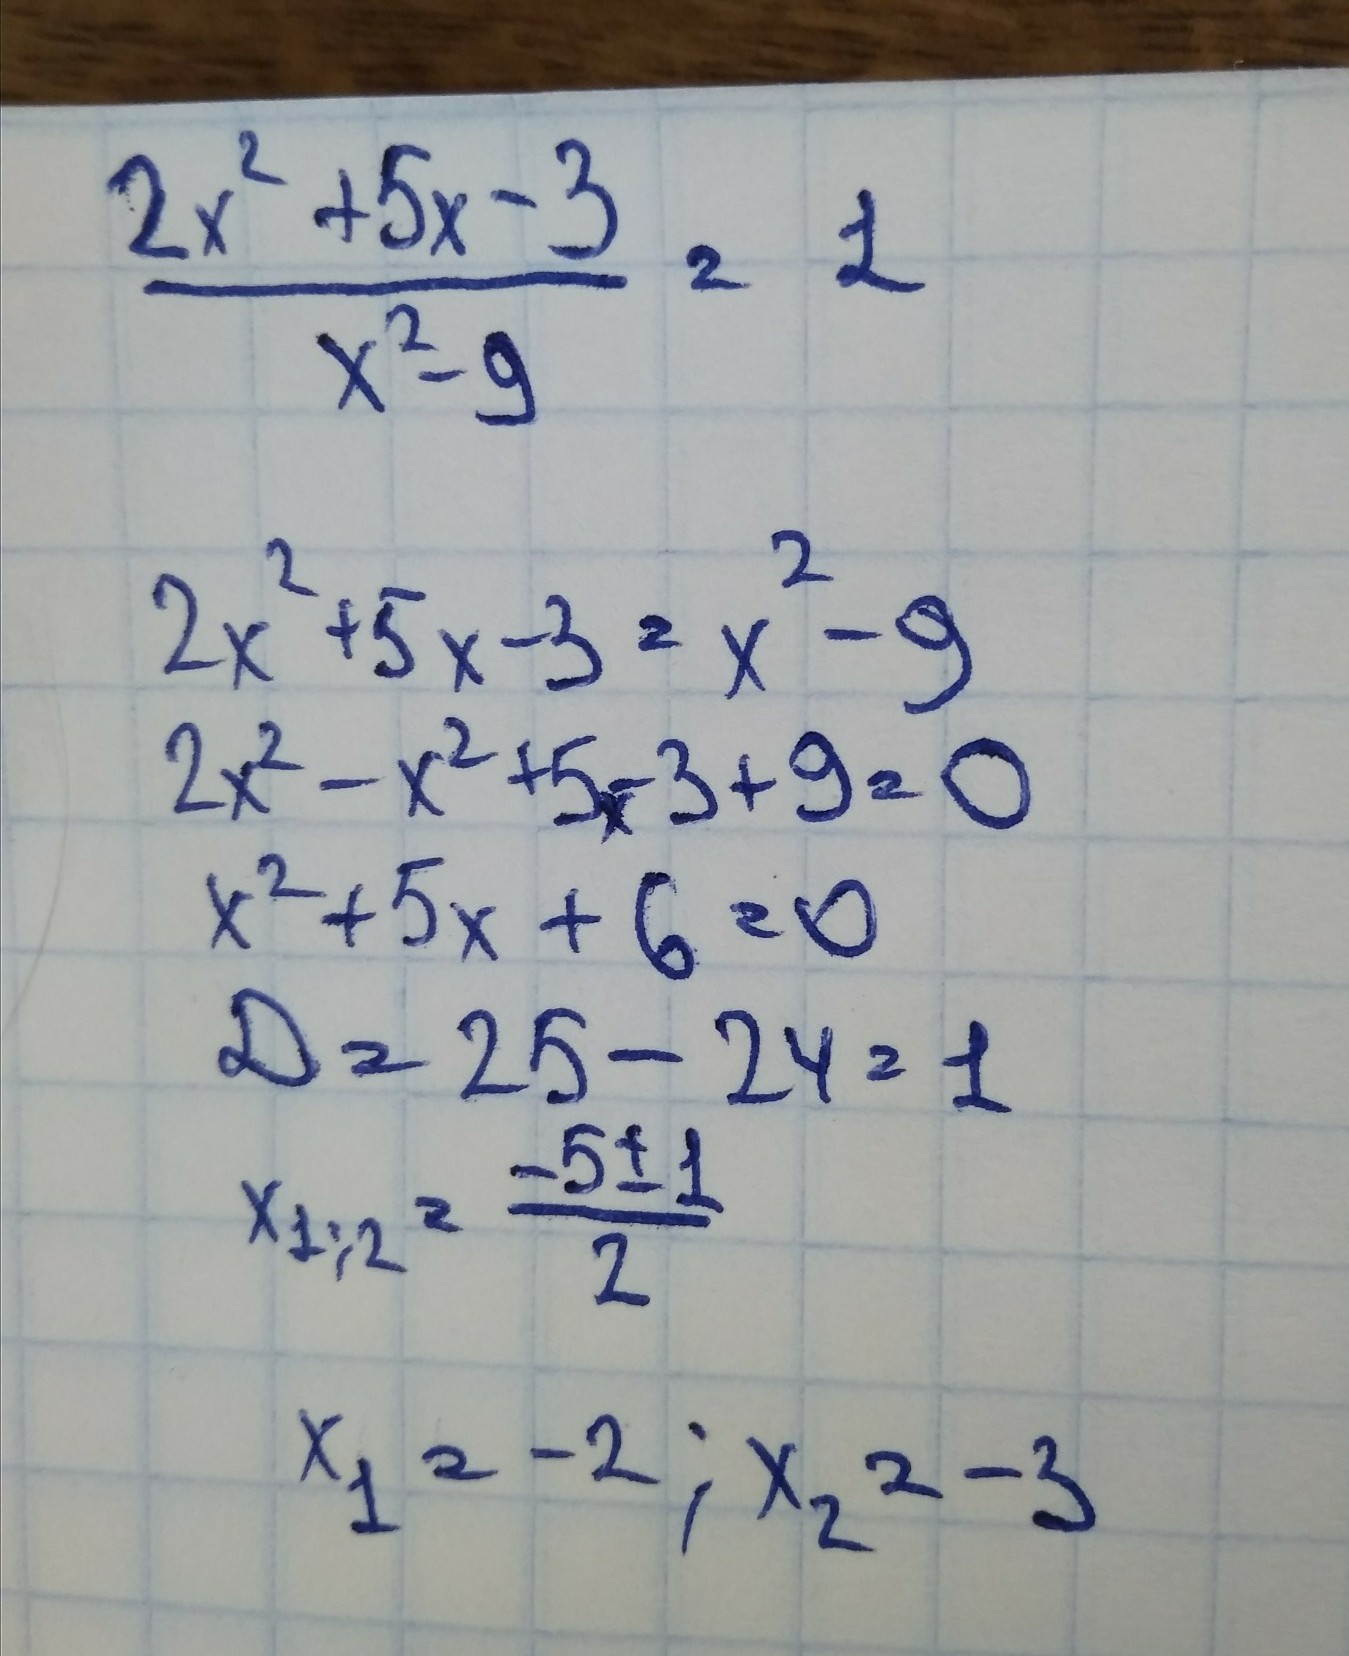 (2x² + 5x - 3)/(x² - 9) = 1
2x² + 5x - 3 = x² - 9
2x² - x² + 5x - 3 + 9 = 0
x² + 5x + 6 = 0
D = 25 - 24 = 1
x₁;₂ = (-5 ± 1)/2
x₁ = -2 ; x₂ = -3